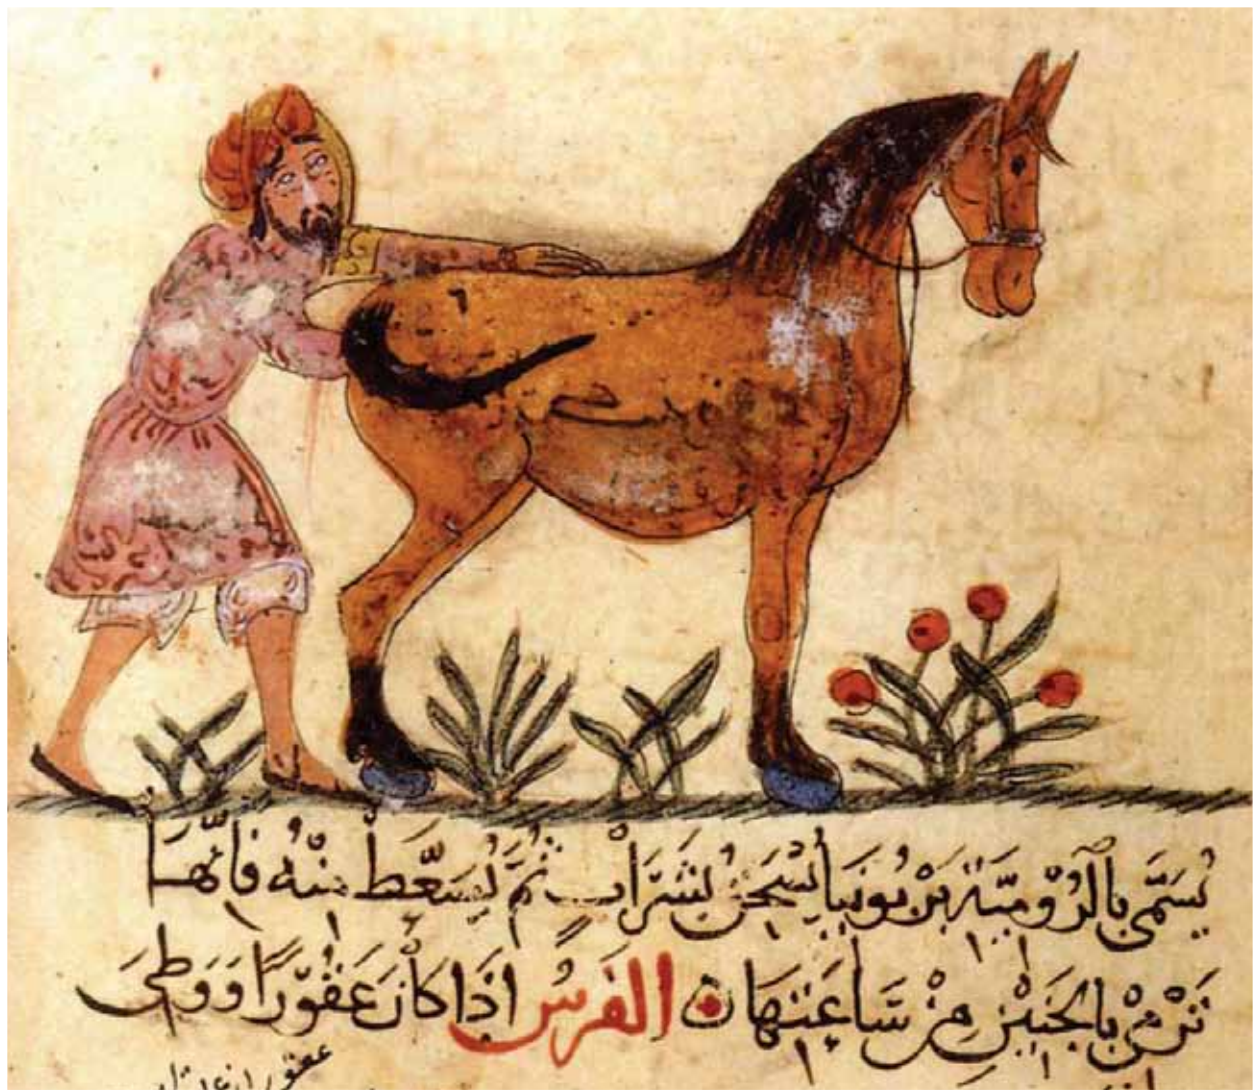 يُسَمَّى بِالرُّوْمِيَّةِ يُسْحَقُ بِشَرَابٍ ثُمَّ يُسَعَّطُ مِنْهُ فَاِنَّهَا
تَرْمِىْ بِالجَنِيْنِ مِنْ سَاعَتِهَا الفَرَسُ اذَا كَانَ عَقُوْرًا وَوَطِىَ
عقور